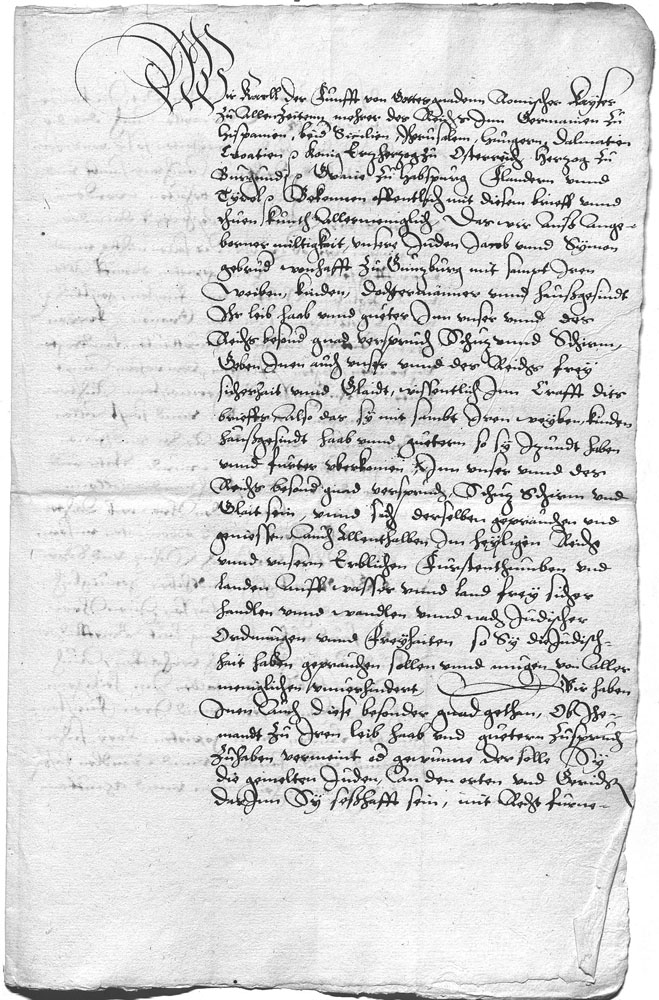 Wir Karll der Funfft von Gottes gnadenn Romischer Kayser
Zu Allen Zeitenn mehrer des Reichs Inn Germanien Zu
Hispanien, beid Sicilien Jherusalem, Hungern, Dalmatien
Croatien Konig Ertzhertzog Zu Osterreich Hertzog Zu
Burgund Grave Zu Habspurg Flandern vnnd
Tyrol Bekennen offentlich mit diesem brieff vnnd
thuen kunth Allermeniglich, Das wir Auss Ange-
borner miltigkeit, vnsere Juden Jacob vnnd Symon
gebrud wonhafft Zu Gunzburg mit sampt Iren
Weiben, kinden, Dochtermänner vnnd haussgesindt
Ihr leib haab vnnd gueter Inn vnser vnnd des
Reichs besond gnad verspruch Schutz vnnd Schirm,
Geben Inen auch vnser vnnd des Reichs frey
sicherheit vnnd Glaidt, wissentlich Inn Crafft dits
brieffs Also das sy mit sambt Iren weyben, kinden
haussgesindt haab vnnd guetern so sy Itzundt haben
vnnd furter vberkomen Inn vnser vnnd des
Reichs besond gnad verspruch, Schutz Schirm vnd
Glait sein, vnnd sich derselben geprauchen vnd
geniessen Auch Allenthalben Im Heyligen Reich
vnnd vnsern Erblichen Furstenthumben vnd
landen Auff wasser vnnd land frey sicher
handlen vnnd wandlen vnnd nach Judischer
Ordnungen vnnd Freyhaiten so Sy die Judisch-
hait haben geprauchen sollen vnnd mugen von Aller
meniglichen vnuerhindert Wir haben
Inen Auch diese besonder gnad gethan, Ob Jhe-
mandt Zu Iren leib haab vnd guetern Zuspruch
Zuhaben vermeint od gewunne der solle Sy
die gemelten Juden, An den orten vnd Gerichtn
darInn Sy sesshafft sein, mit Recht furne-